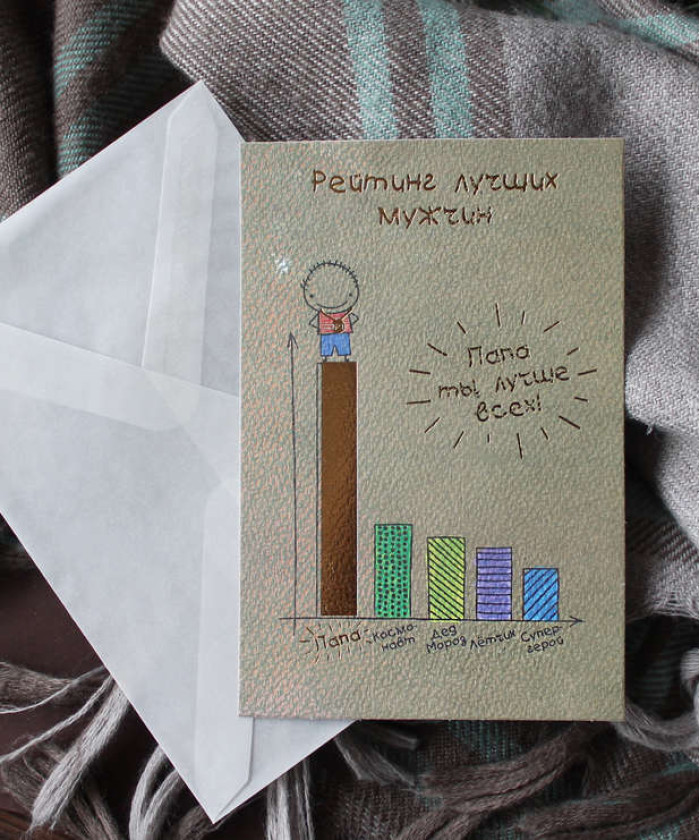 Рейтинг лучших
мужчин
Папа
ты лучше
всех!
Папа
Космо-
навт
Дед
Мороз
Лётчик
Супер-
герой